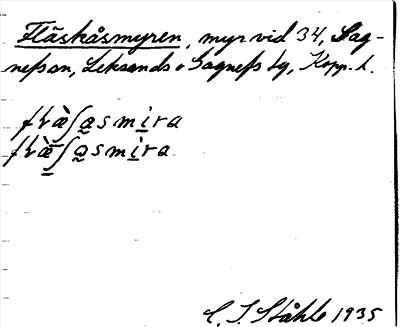 Fläskåsmyren, myr vid 34, Sag-
neſsan, Leksands o Sagneſs by, Kopp. l.
fɫæ̀ʃa̱smi̱ra
fɫæ̱̀ʃa̱smi̱ra
C. I. Ståhle 1935